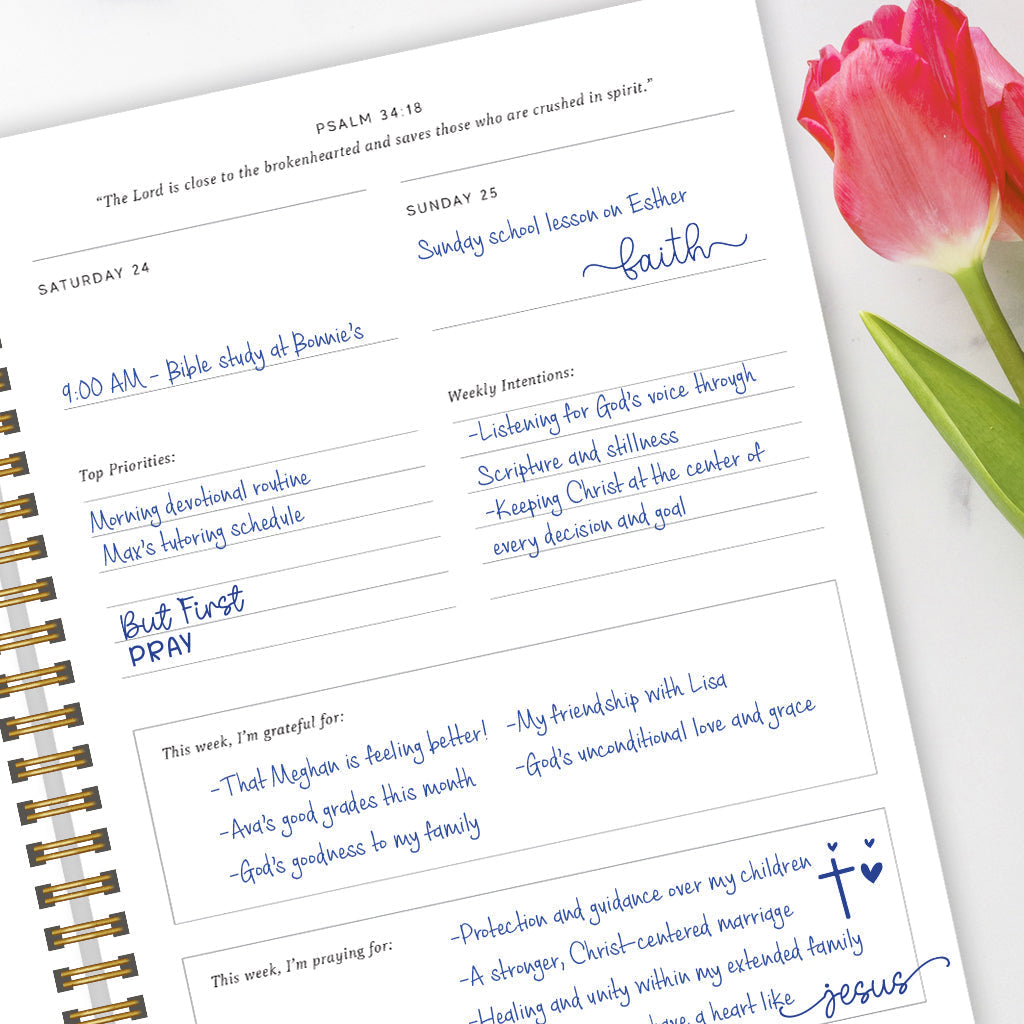 PSALM 34:18
“The Lord is close to the brokenhearted and saves those who are crushed in spirit.”
SATURDAY 24
9:00 AM - Bible study at Bonnie's
SUNDAY 25
Sunday school lesson on Esther
faith
Top Priorities:
Morning devotional routine
Max's tutoring schedule
But First
PRAY
Weekly Intentions:
-Listening for God's voice through
Scripture and stillness
-Keeping Christ at the center of
every decision and goal
This week, I'm grateful for:
-That Meghan is feeling better!
-Ava's good grades this month
-God's goodness to my family
-My friendship with Lisa
-God's unconditional love and grace
This week, I'm praying for:
-Protection and guidance over my children
-A stronger, Christ-centered marriage
-Healing and unity within my extended family
a heart like jesus